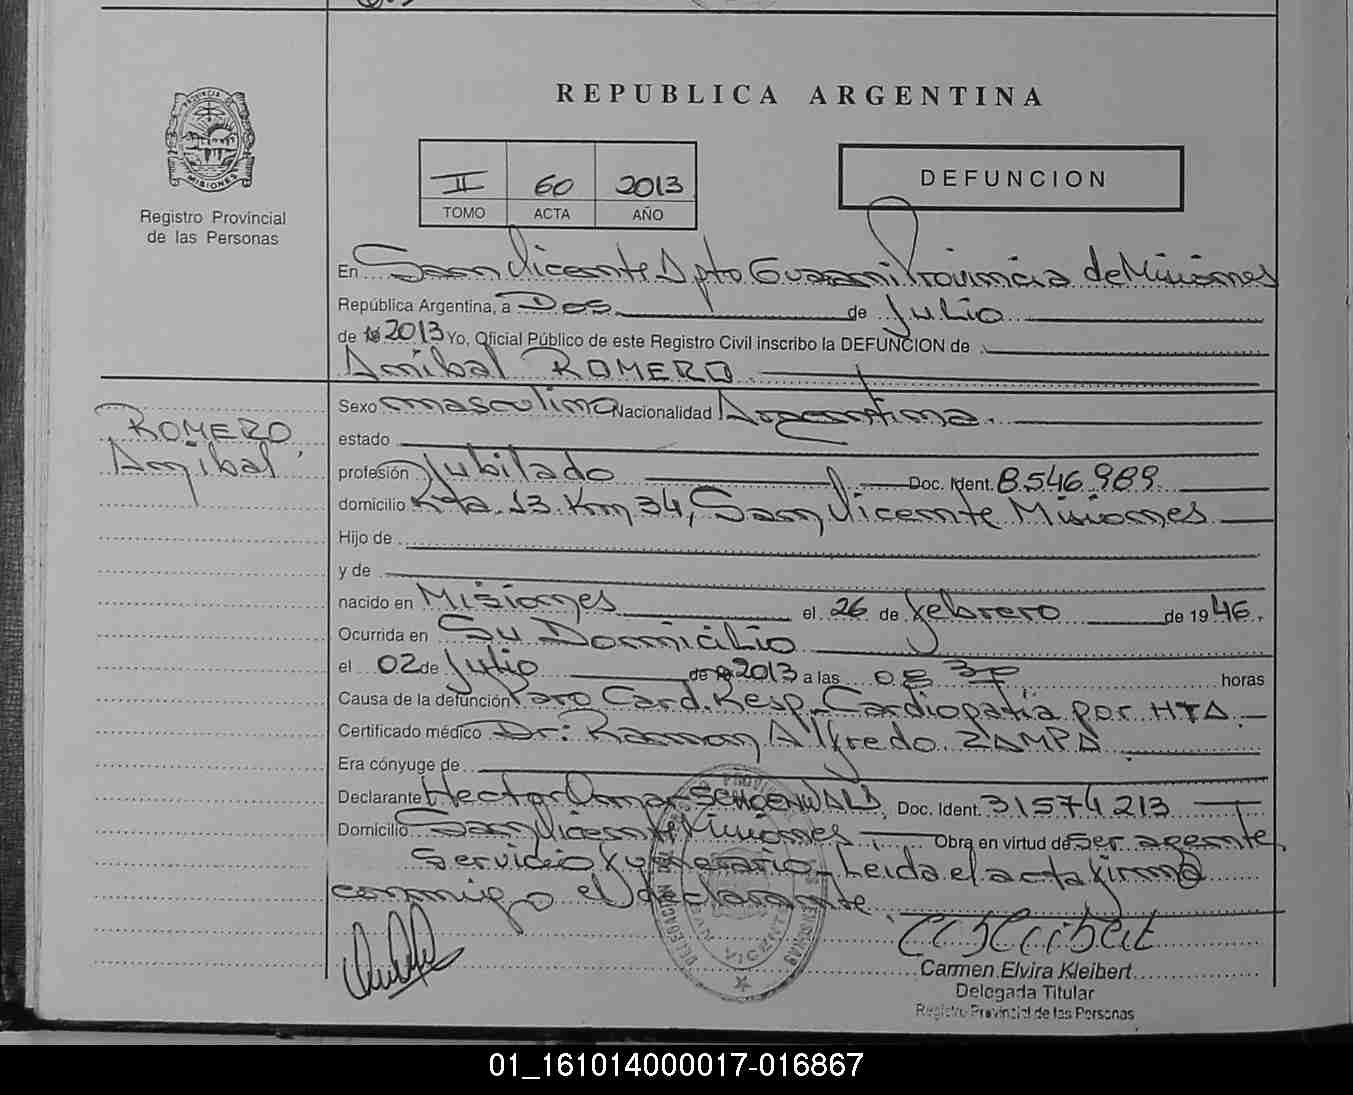 PROVINCIA DE
MISIONES
Registro Provincial
de las Personas
REPUBLICA ARGENTINA
II 60 2013
TOMO ACTA AÑO
DEFUNCION
En San Vicente Dpto Guaraní Provincia de Misiones
República Argentina, a Dos de Julio
de 19 2013 Yo, Oficial Público de este Registro Civil inscribo la DEFUNCION de
Anibal ROMERO
ROMERO
Anibal
Sexo masculino Nacionalidad Argentina.
estado
profesión Jubilado Doc. Ident. 8.546.989
domicilio Rta. 13 Km 34, San Vicente Misiones
Hijo de
y de
nacido en Misiones el 26 de febrero de 19 46.
Ocurrida en Su Domicilio
el 02 de Julio de 19 2013 a las 08 30 horas
Causa de la defunción Paro Card. Resp. Cardiopatia por HTA
Certificado médico Dr: Ramon Alfredo ZAMPA
Era cónyuge de
Declarante Hector Omar Doc. Ident. 31574213
Domicilio San Vicente Misiones Obra en virtud de ser agente
Servicio funerario. Leida el acta firma
conmigo el declarante.
Carmen Elvira Kleibert
Delegada Titular
Registro Provincial de las Personas
01_161014000017-016867